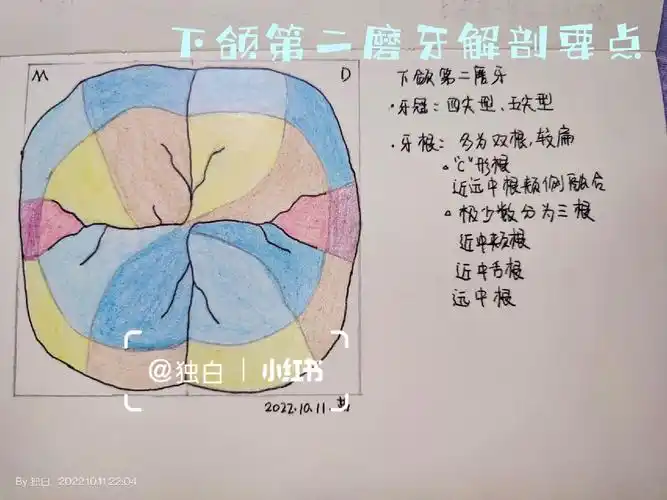 下颌第二磨牙解剖要点
M
D
下颌第二磨牙
·牙冠：四尖型、五尖型
·牙根：多为双根,较扁
"C"形根
近远中根颊侧融合
极少数分为三根
近中颊根
近中舌根
远中根
@独白 | 小红书
2022.10.11
By 独白 2022.10.11 22:04